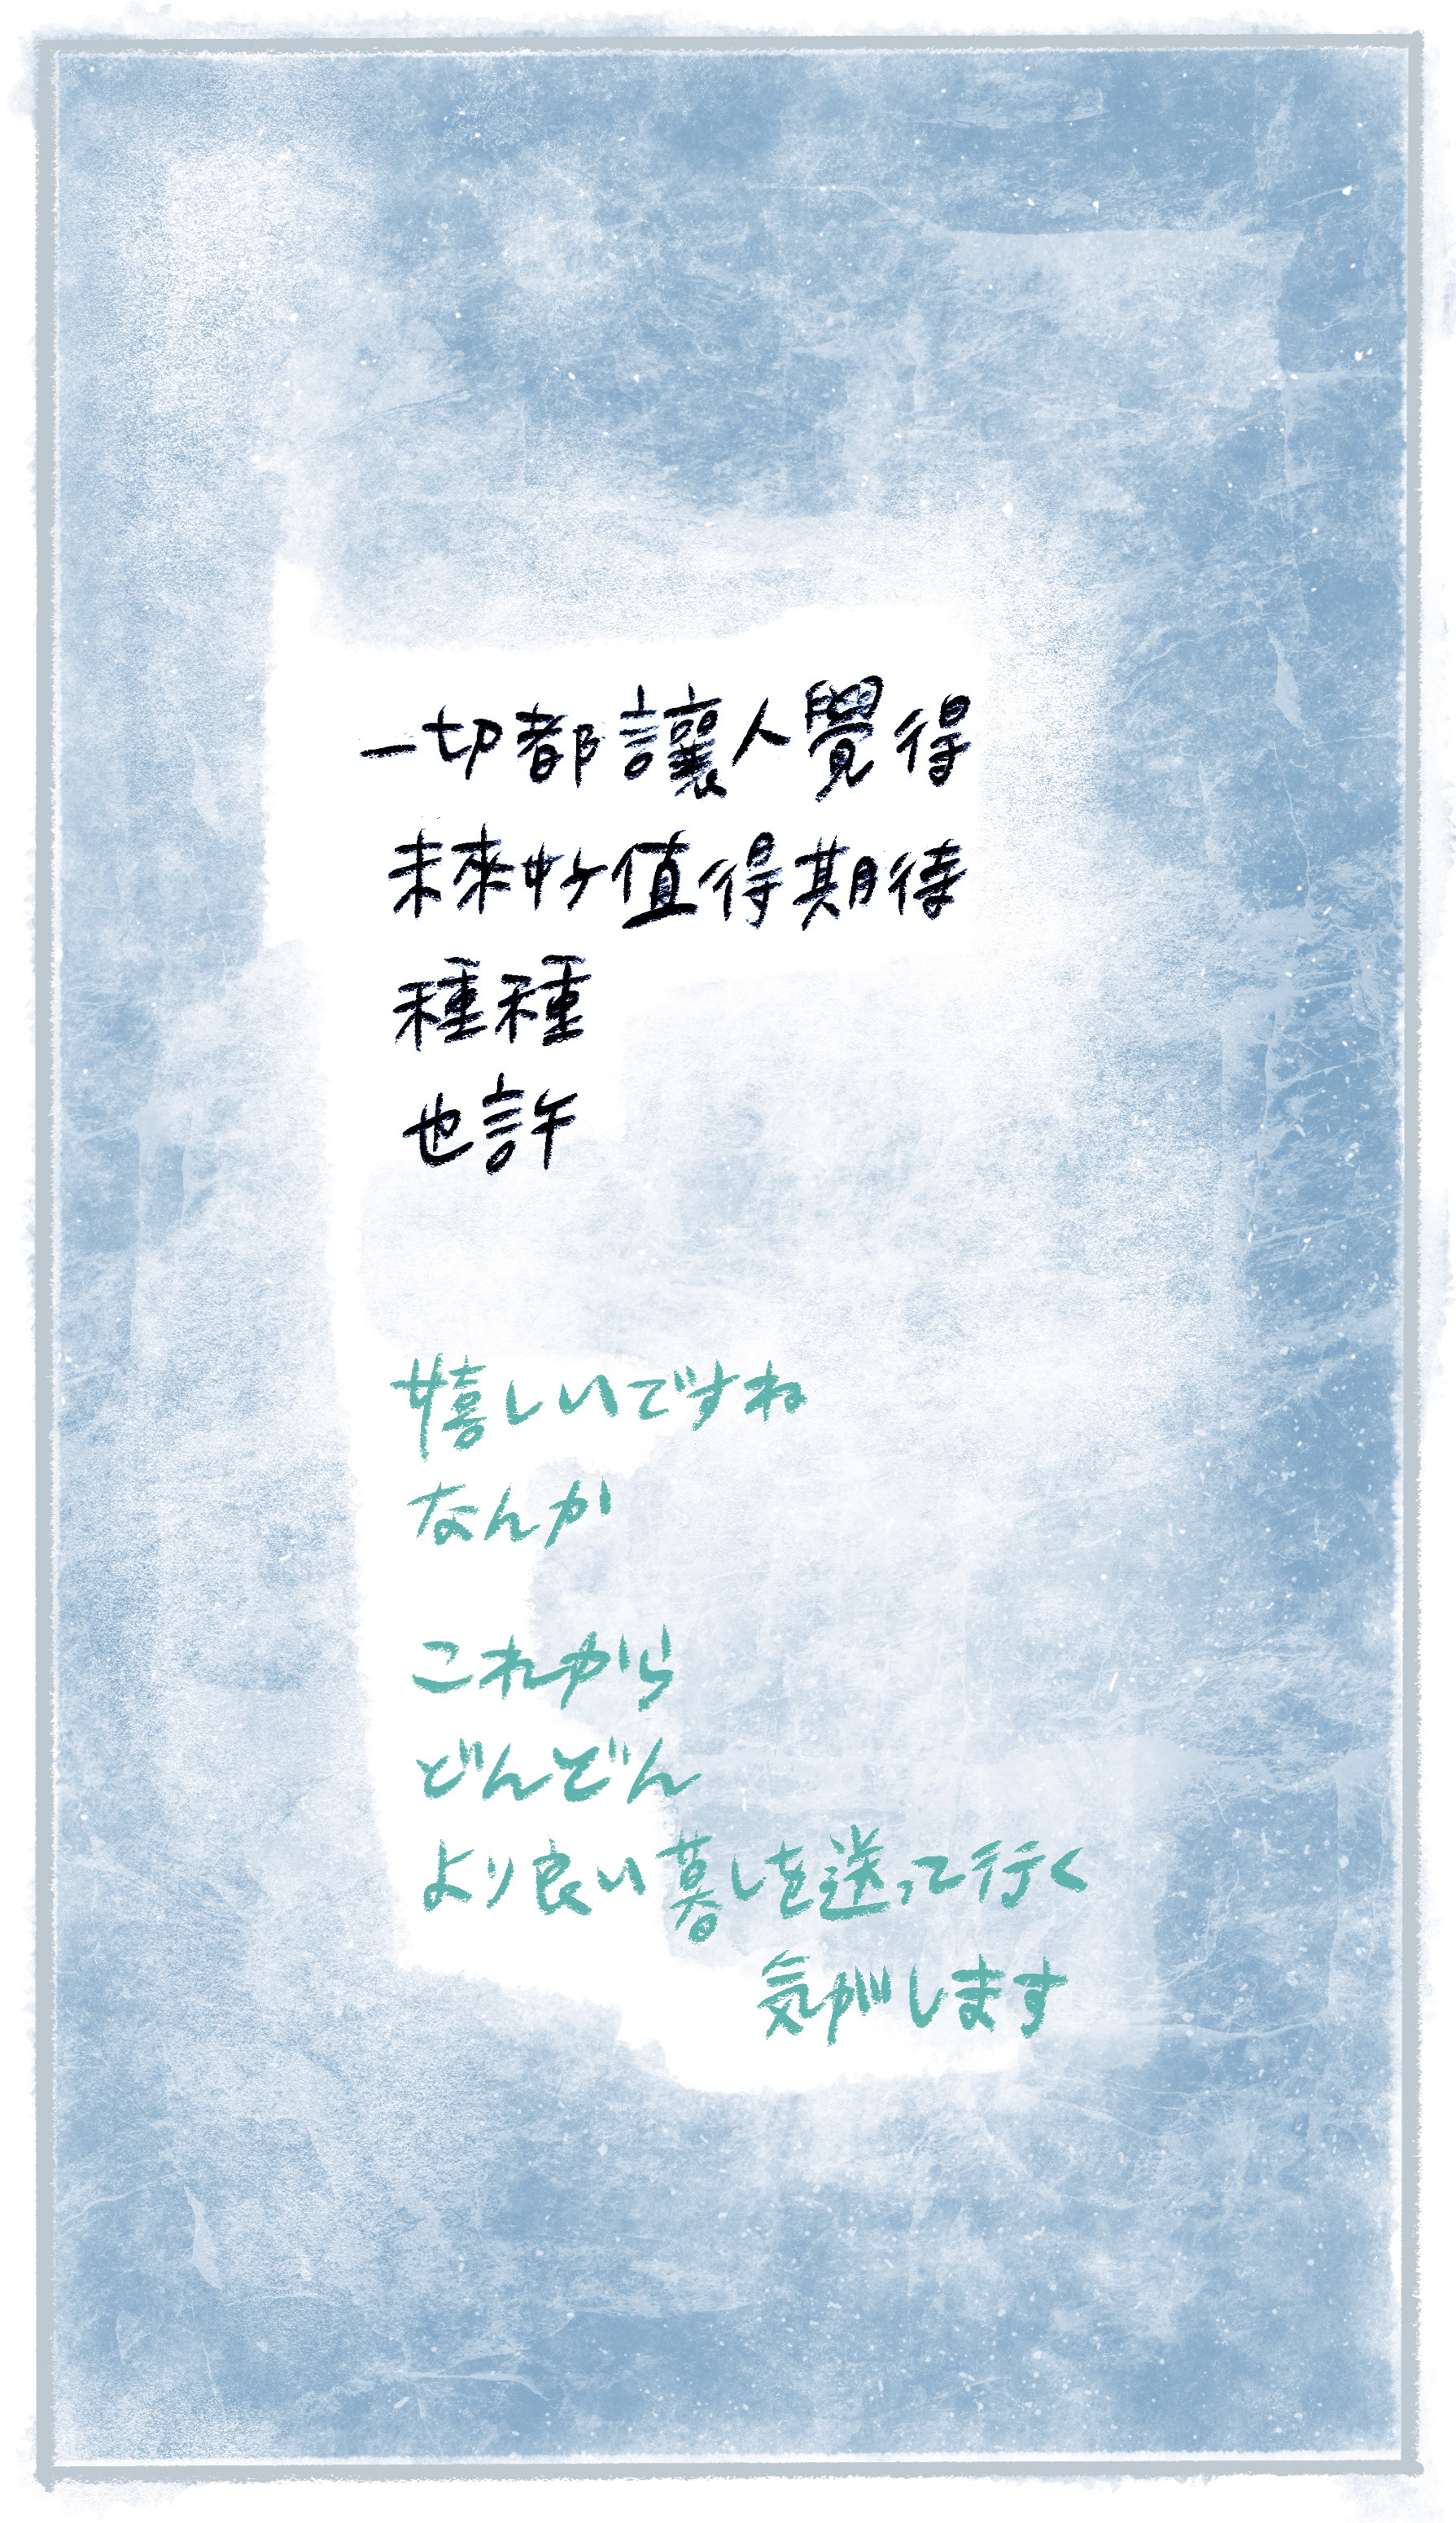 一切都讓人覺得
未來好值得期待
種種
也許
嬉しいですね
なんか
これから
どんどん
より良い暮しを送って行く
気がします